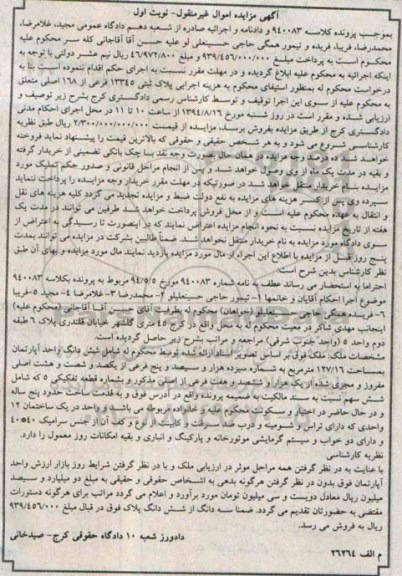 آگهی مزایده اموال غیرمنقول- نوبت اول
بموجب پرونده کلاسه ۹۴۰۰۸۳ و دادنامه و اجرائیه صادره از شعبه دهم دادگاه عمومی مجید، غلامرضا،
محمدرضا، فریبا، فریده و تیمور همگی حاجی حسینعلی لو علیه حسن آقا آقاجانی کله سر محکوم علیه
محکوم است به پرداخت مبلغ ۹۳۹/۴۵۶/۰۰۰/۰۰۰ و مبلغ ۴۶/۹۷۲/۸۰۰ ریال نیم عشر دولتی با توجه به
اینکه اجرائیه به محکوم علیه ابلاغ گردیده و در مهلت مقرر نسبت به اجرای حکم اقدام ننموده است بنا به
درخواست محکوم له بمنظور استیفای محکوم به هزینه اجرایی پلاک ثبتی ۱۳۳۴۵ فرعی از ۱۶۸ اصلی متعلق
به محکوم علیه از سوی این اجرا توقیف و توسط کارشناس رسمی دادگستری کرج بشرح زیر توصیف و
ارزیابی شده و مقرر است در روز شنبه مورخ ۱۳۹۴/۸/۱۶ از ساعت ۱۰ تا ۱۱ در محل اجرای احکام مدنی
دادگستری کرج از طریق مزایده بفروش برسد. مزایده از قیمت ۲/۳۰۰/۰۰۰/۰۰۰ ریال طبق نظریه
کارشناسی شروع می شود و به هر شخص حقیقی و حقوقی که بالاترین قیمت را پیشنهاد نماید فروخته
خواهد شد ده درصد وجه مزایده در همان حال بصورت وجه نقد یا چک بانکی تضمینی از خریدار گرفته
و بقیه در مدت یک ماه از وی وصول خواهد شد و پس از انجام مراحل قانونی و صدور حکم تملیک مورد
مزایده بنام خریدار منتقل خواهد شد در صورتیکه در مهلت مقرر خریدار وجه مزایده را پرداخت ننماید
سپرده وی پس از کسر هزینه های مزایده به نفع دولت ضبط و مزایده تجدید می گردد کلیه هزینه های نقل
و انتقال به عهده محکوم علیه است و از محل فروش پرداخت خواهد شد طرفین می توانند در مدت یک
هفته از تاریخ مزایده نسبت به نحوه انجام مزایده اعتراض نمایند که در اینصورت تا رسیدگی به اعتراض از
سوی دادگاه مورد مزایده به نام خریدار منتقل نخواهد شد. ضمناً طالبین شرکت در مزایده می توانند بمدت
پنج روز قبل از مزایده با اطلاع این اجراء از مال مورد مزایده بازدید نمایند. مال مورد مزایده و بهای آن طبق
نظر کارشناس بدین شرح است
احتراما به استحضار می رساند عطف به نامه شماره ۹۴۰۰۸۳ مورخ ۹۴/۵/۵ مربوط به پرونده بکلاسه ۹۴۰۰۸۳
موضوع اجرا احکام آقایان و خانمها ۱- تیمور حاجی حسینعلیلو ۲- محمدرضا ۳- غلامرضا ۴- مجید ۵- فریبا
۶- فریده همگی حاجی حسینعلیلو (خواهان) محکوم له بطرفیت آقای حسن آقا آقاجانی (محکوم علیه)
اینجانب مهدی شاکر در معیت محکوم له به محل واقع در کرج ۴۵ متری گلشهر خیابان قلندری پلاک ۶ طبقه
دوم واحد ۵ (واحد جنوب شرقی) مراجعه و مراتب بشرح زیر حاصل گردیده است.
مشخصات ملک: ملک فوق بر اساس تصویر اسناد ارائه شده توسط محکوم له شامل شش دانگ واحد آپارتمان
بمساحت ۱۲۷/۱۶ مترمربع به شماره سیزده هزار و سیصد و پنج فرعی از یکصد و شصت و هشت اصلی
مفروز و مجزی شده از یک هزار و ششصد و هفت فرعی از اصلی مذکور و بشماره قطعه تفکیکی ۵ که شامل
شش سهم نسبت به سند مالکیت به ضمیمه پرونده واقع در آدرس فوق و به قدمت ساخت حدود پنج ساله
و در حال حاضر در اختیار و سکونت محکوم علیه و خانواده مربوطه می باشد و واحد در یک ساختمان ۱۲
واحدی که دارای تراس و شومینه و درب ضد سرقت و کابینت از نوع و کف آن از جنس سرامیک ۴۰*۴۰
و دارای دو خواب و سیستم گرمایشی موتورخانه و پارکینگ و انباری و بقیه امکانات روز معمول را دارد.
نظریه کارشناسی
با عنایت به در نظر گرفتن همه مراحل موثر در ارزیابی ملک و با در نظر گرفتن شرایط روز بازار ارزش واحد
آپارتمان فوق بدون در نظر گرفتن هرگونه بدهی به اشخاص حقوقی و حقیقی به مبلغ دو میلیارد و سیصد
میلیون ریال معادل دویست و سی میلیون تومان مورد برآورد و اعلام می گردد مراتب برای هرگونه دستورات
مقتضی به حضورتان تقدیم می گردد. ضمنا سه دانگ از شش دانگ پلاک فوق در قبال مبلغ ۹۳۹/۴۵۶/۰۰۰
ریال به فروش می رسد.
دادورز شعبه ۱۰ دادگاه حقوقی کرج- صیدخانی
م الف ۲۶۲۶۴